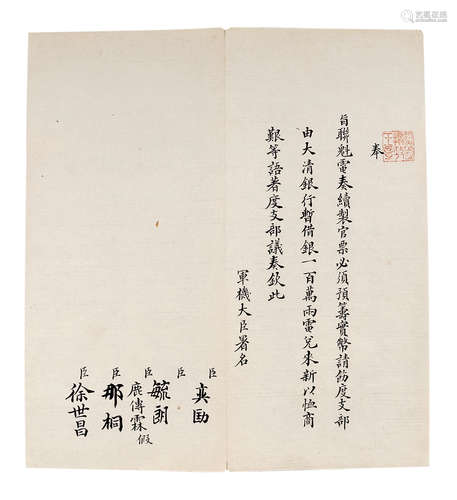 奉
旨聯魁電奏續製官票必須預籌實幣請飭度支部
由大清銀行暫借銀一百萬兩電兌來新以恤商
艱等語著度支部議奏欽此
軍機大臣署名
臣奕劻
臣毓朗
鹿傳霖假
臣那桐
臣徐世昌